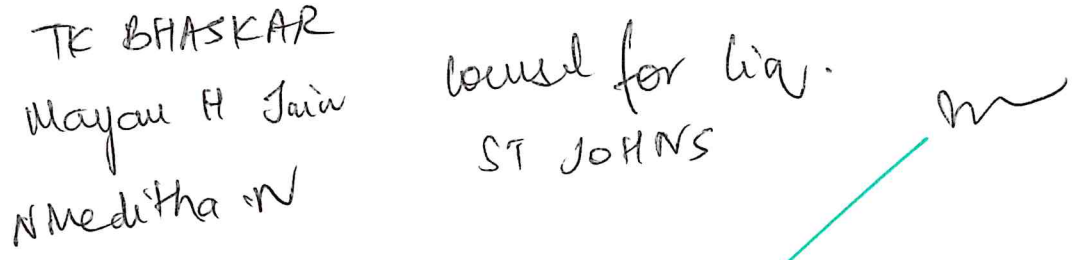 TK BHASKAR
Mayan H Jain
N Meditha .N
Counsel for liq.
ST JOHNS